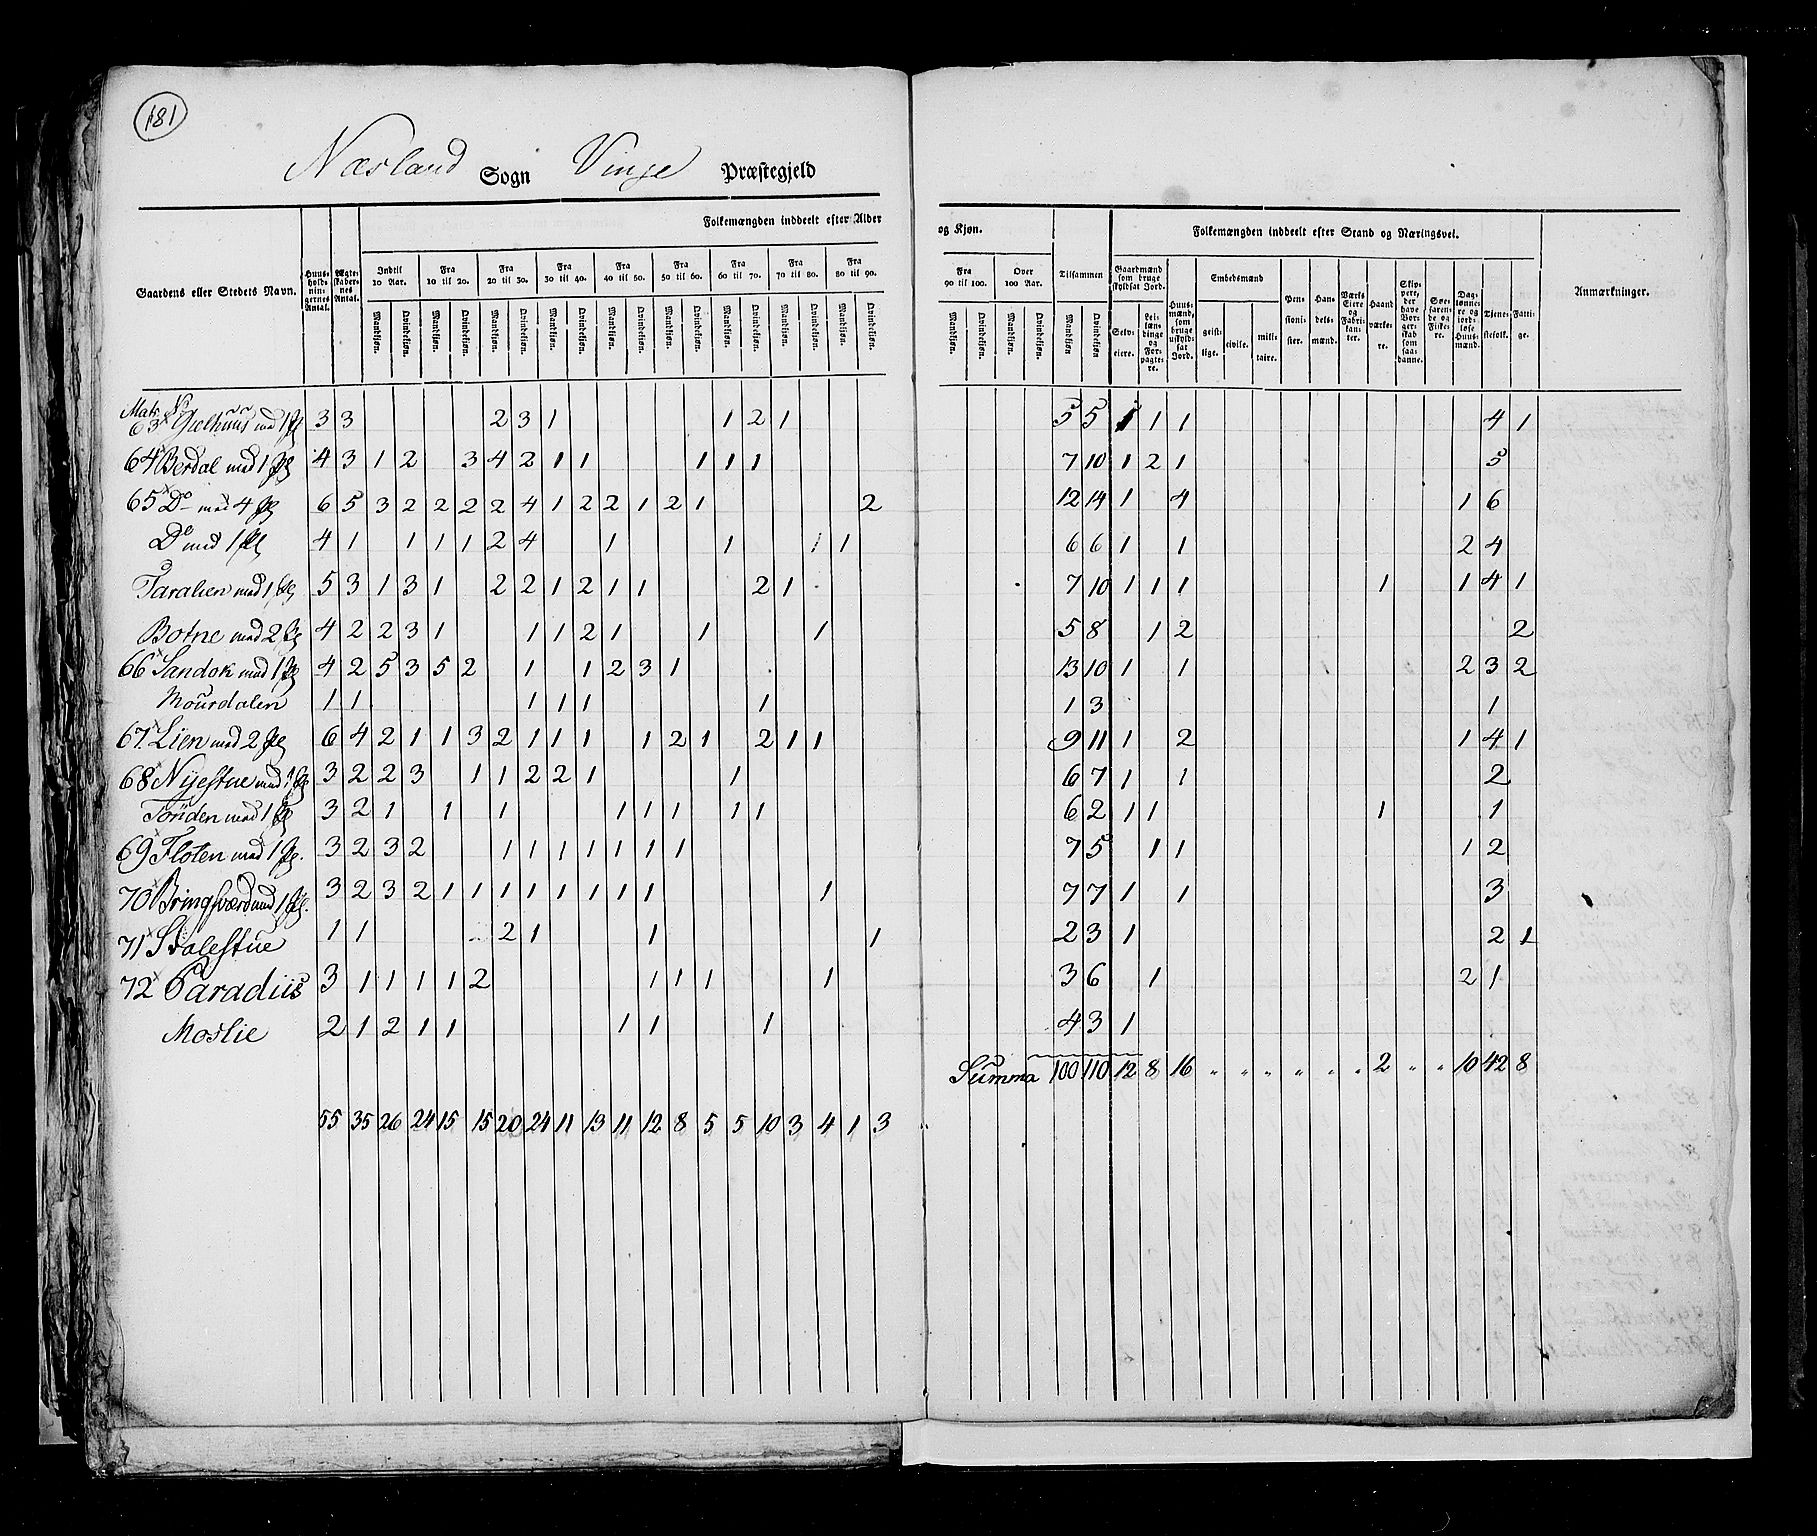 181
Næsland Sogn Vinje Præstegjeld
Folkemængden inddeelt efter Alder og Kjøn. Folkemængden inddeelt efter Stand og Næringsvei.
Gaardens eller Stedets Navn. Huusholdningernes Antal. Ægteskabernes Antal. Indtil 10 Aar. Fra 10 til 20. Fra 20 til 30. Fra 30 til 40. Fra 40 til 50. Fra 50 til 60. Fra 60 til 70. Fra 70 til 80. Fra 80 til 90. Fra 90 til 100. Over 100 Aar. Tilsammen Gaardmænd som bruge skyldsat Jord. Huusmænd, som bruge uskyldsat Jord. Embedsmænd Pensionister. Handelsmænd. Værks Eiere og Fabrikanter. Haandværkere. Skippere, der have Borgerskab som saadanne. Søefarende og Fiskere. Daglønnere og jordløse Huusmænd. Tjenestefolk. Fattige. Anmærkninger.
Mandkjøn. Qvindekjøn. Mandkjøn. Qvindekjøn. Mandkjøn. Qvindekjøn. Mandkjøn. Qvindekjøn. Mandkjøn. Qvindekjøn. Mandkjøn. Qvindekjøn. Mandkjøn. Qvindekjøn. Mandkjøn. Qvindekjøn. Mandkjøn. Qvindekjøn. Mandkjøn. Qvindekjøn. Mandkjøn. Qvindekjøn. Mandkjøn Qvindekjøn Selveiere. Leilændinge og Forpagtere. geistlige. civile. militaire.
Mats No
63 med 1 Pl 3 3 2 3 1 1 2 1 5 5 1 1 1 4 1
64 Berdal med 1 Pl 4 3 1 2 3 4 2 1 1 1 1 1 7 10 1 2 1 5
65 Do med 4 Pl 6 5 3 2 2 2 2 4 1 2 2 1 2 1 2 12 14 1 4 1 6
Do med 1 Pl 4 1 1 1 1 2 4 1 1 1 1 6 6 1 1 2 4
Taralien med 1 Pl 5 3 1 3 1 2 2 1 2 1 1 2 1 7 10 1 1 1 1 1 4 1
Botne med 2 Pl 4 2 2 3 1 1 1 2 1 1 1 5 8 1 2 2
66 Sandok med 1 Pl 4 2 5 3 5 2 1 1 2 3 1 13 10 1 1 2 3 2
Mourdalen 1 1 1 1 1 1 1 3 1
67 Lien med 2 Pl 6 4 2 1 1 3 2 1 1 1 1 2 1 2 1 1 9 11 1 2 1 4 1
68 Nÿestue med 1 Pl 3 2 2 3 1 1 2 2 1 1 6 7 1 1 2
Tönden med 1 Pl 3 2 1 1 1 1 1 1 1 1 6 2 1 1 1 1
69 Floten med 1 Pl. 3 2 3 2 1 1 1 1 1 1 1 7 5 1 1 1 2
70 Bringsværd med 1 Pl. 3 2 3 2 1 1 1 1 1 1 1 1 1 7 7 1 1 3
71 Stalestue 1 1 2 1 1 1 2 3 1 2 1
72 Paradiis 3 1 1 1 1 2 1 1 1 1 3 6 1 2 1
Moslie 2 1 2 1 1 1 1 1 4 3 1
Summa 100 110 12 8 16 " " " " " " 2 " " 10 42 8
55 35 26 24 15 15 20 24 11 13 11 12 8 5 5 10 3 4 1 3